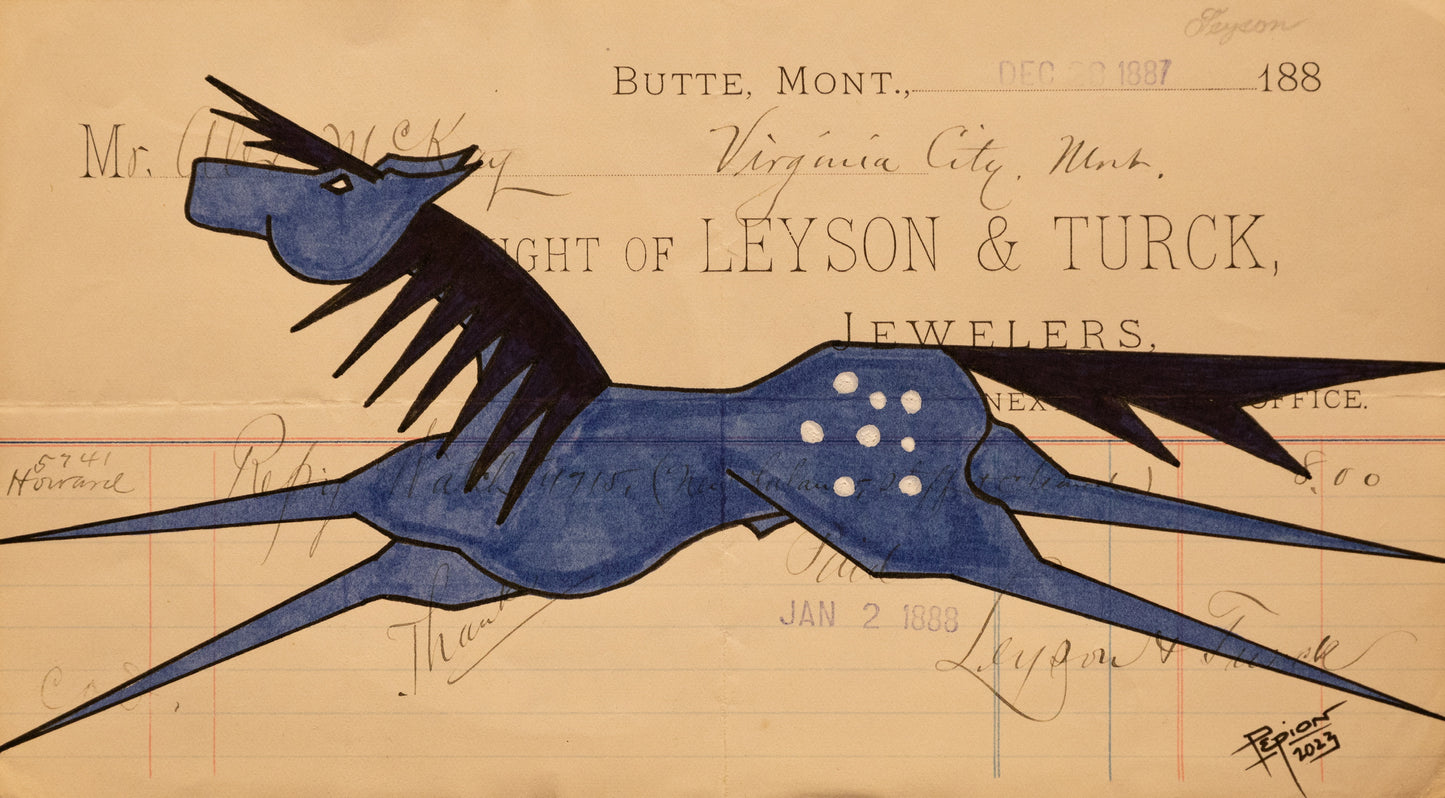 Leyson
BUTTE, MONT., DEC 1887 188
Mr. McKay Virginia City, Mont.
OF LEYSON & TURCK,
JEWELERS,
NEXT OFFICE.
5741
Howard
Repg Watch 8.00
Paid
JAN 2 1888
Thanks
Leyson & Turck
PEPION
2023